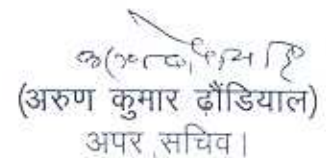 (अरुण कुमार ढौंडियाल)
अपर सचिव।